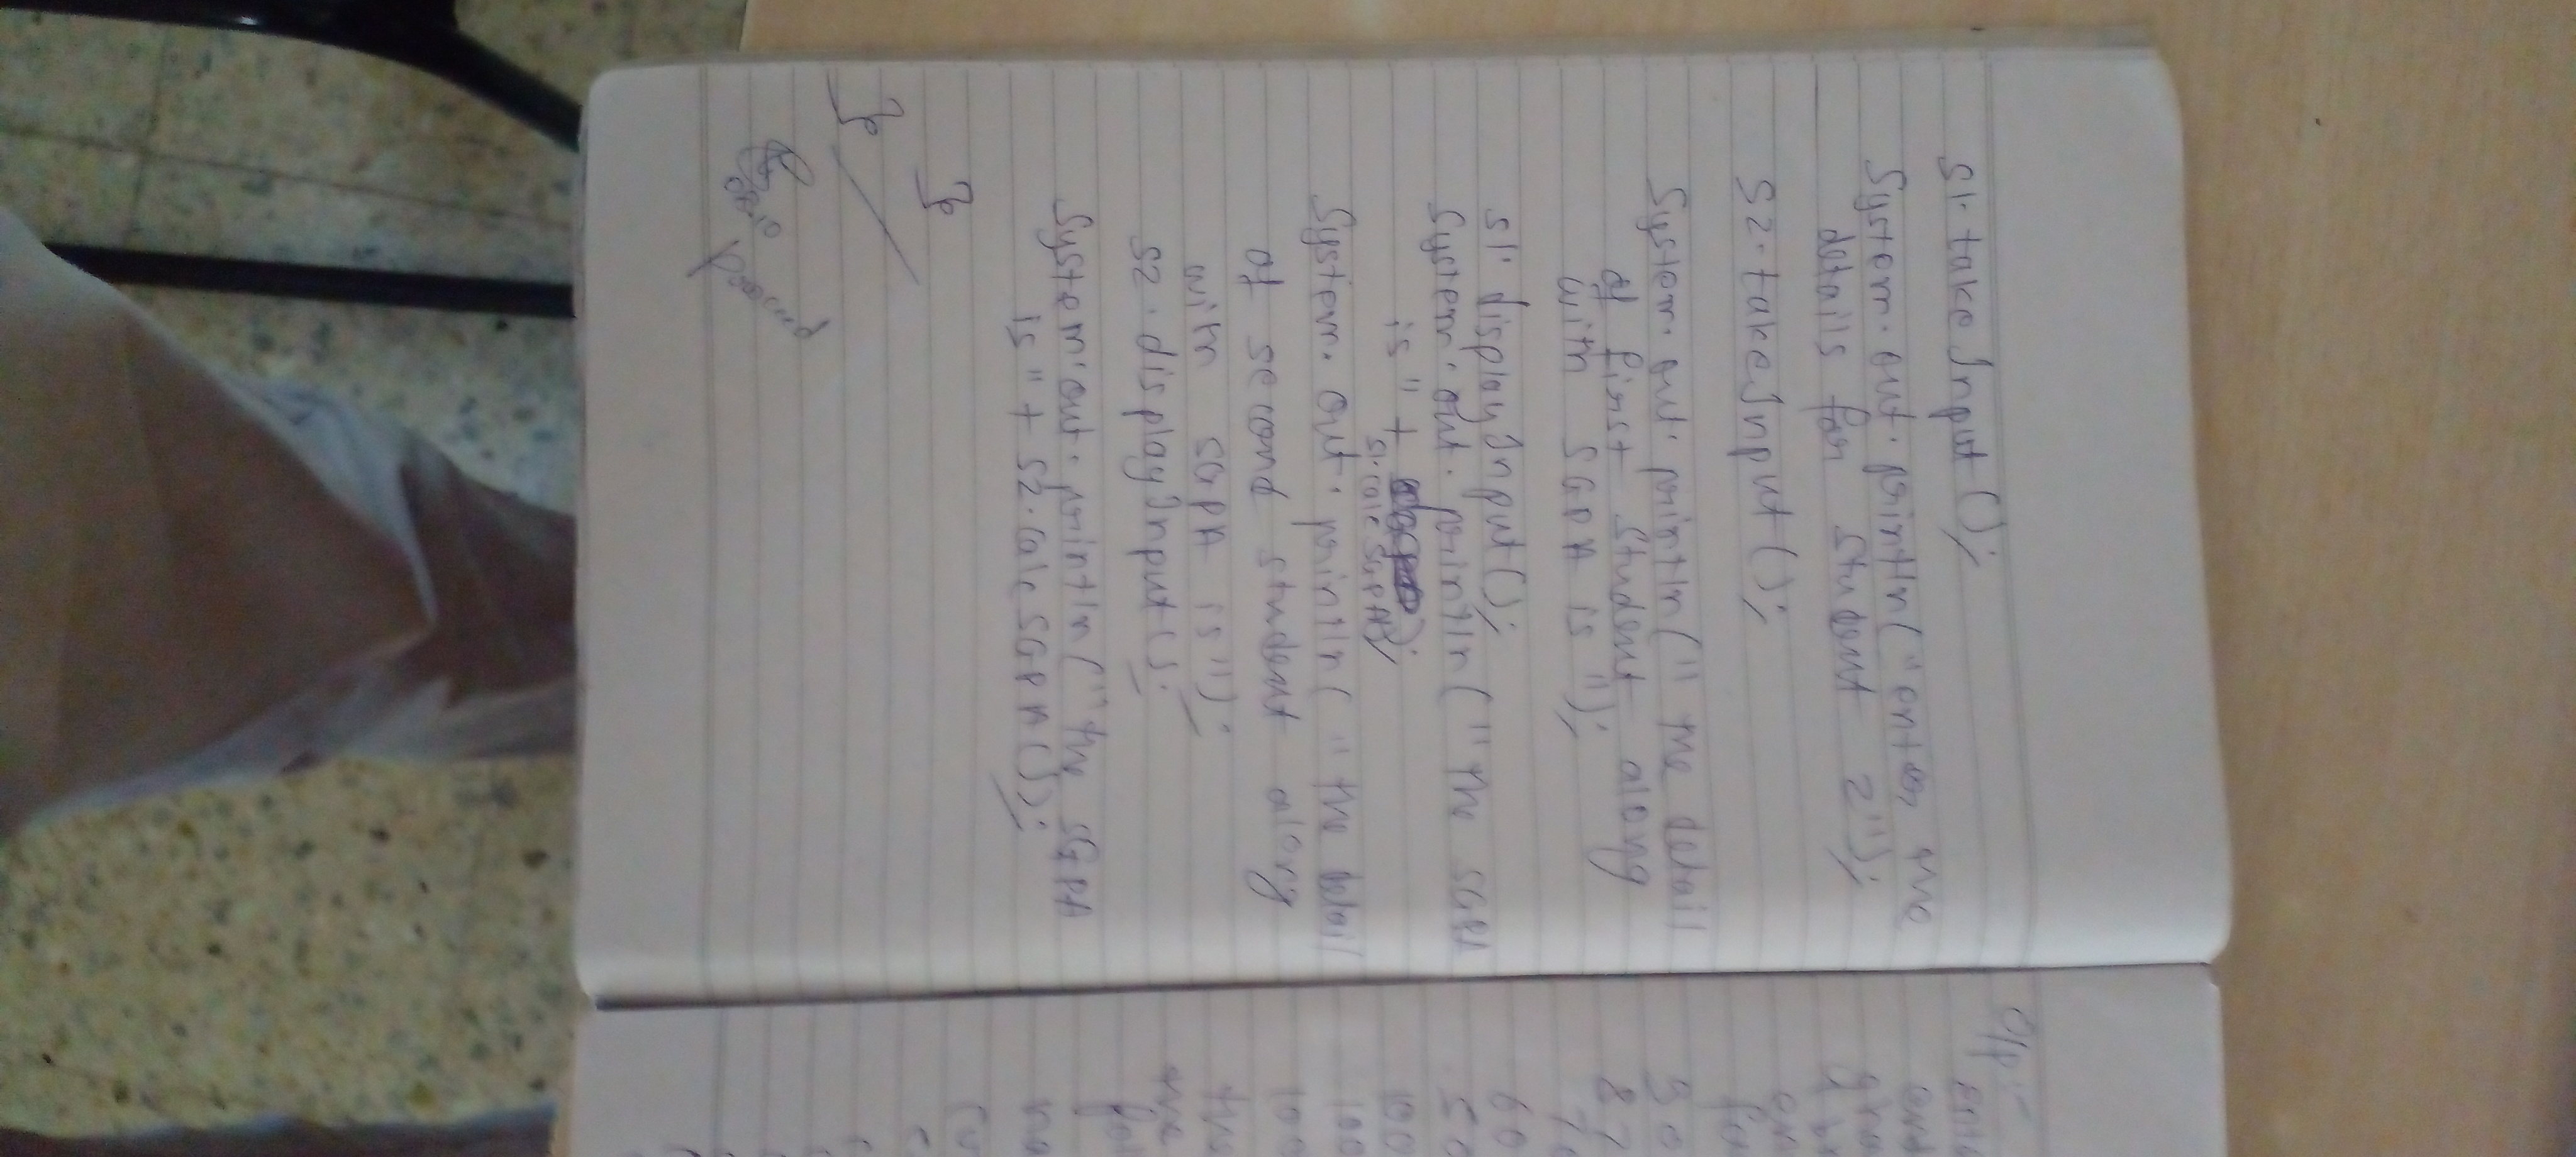 S1. take Input ();
System. out. println (" enter the
details for student 2");
S2. take Input ();
System. out. println (" the detail
of first student along
with SGPA is ");
S1. display Input ();
System. out. println (" the SGPA
is " +
S1. calc SGPA());
System. out. println (" the detail
of second student along
with SGPA is ");
S2. display Input ();
System. out. println (" the SGPA
is " + S2. calc SGPA ());
}
}
O/p :-
30
60
50
100
100
100